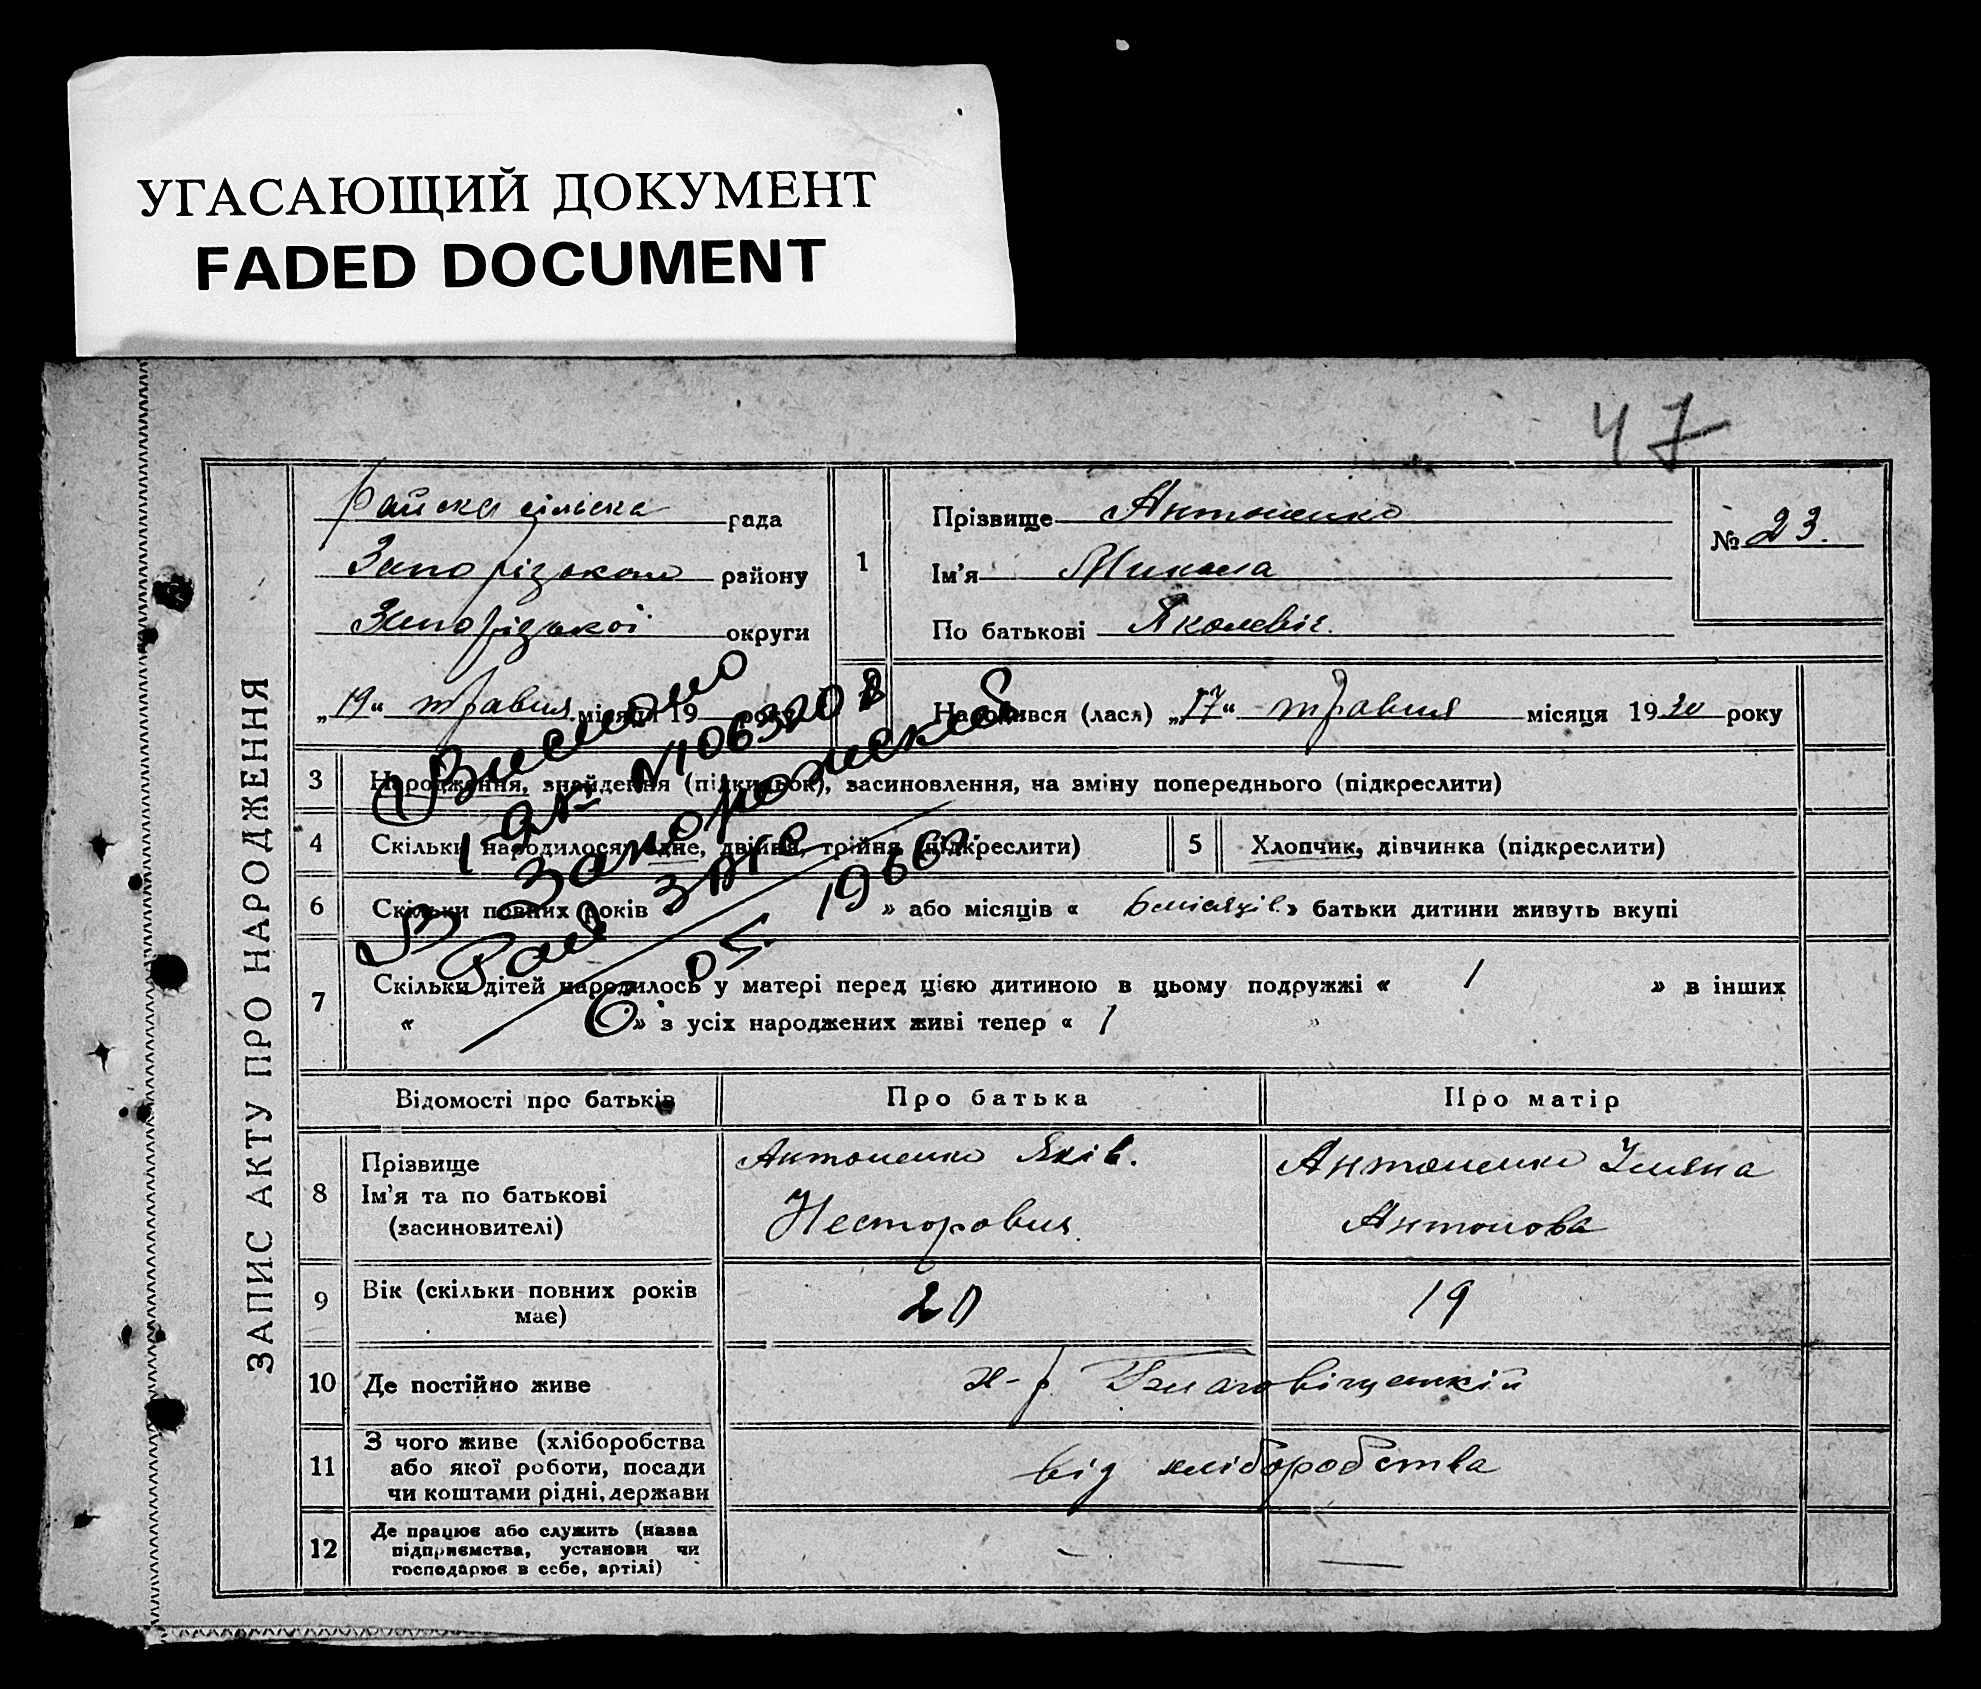 УГАСАЮЩИЙ ДОКУМЕНТ
FADED DOCUMENT
47
ЗАПИС АКТУ ПРО НАРОДЖЕННЯ
Райска сільска рада
Запорізького району
Запорізької округи
„19“ травня місяця 19 року
1
Прізвище Антоненко
Ім’я Микола
По батькові Яковлевіч.
№ 23.
2 Народився (лася) „17“ травня місяця 1930 року
3 Народження, знайдення (підкидьок), засиновлення, на зміну попереднього (підкреслити)
4 Скільки народилося: одне, двійня, трійня (підкреслити)
5 Хлопчик, дівчинка (підкреслити)
6 Скільки повних років « » або місяців « 6 місяців » батьки дитини живуть вкупі
7 Скільки дітей народилось у матері перед цією дитиною в цьому подружжі « 1 » в інших
« » з усіх народжених живі тепер « 1 »
Выслано
1 эк.
В Запорожский
Рай загс
6 05. 1966г.
Відомості про батьків
Про батька
Про матір
8 Прізвище
Ім’я та по батькові
(засиновителі)
Антоненко Яків.
Несторович
Антоненко Уляна
Антонова
9 Вік (скільки повних років
має)
20
19
10 Де постійно живе
х-р Благовіщенкій
11 З чого живе (хліборобства
або якої роботи, посади
чи коштами рідні, держави
від хліборобства
12 Де працює або служить (назва
підприємства, установи чи
господарює в себе, артілі)